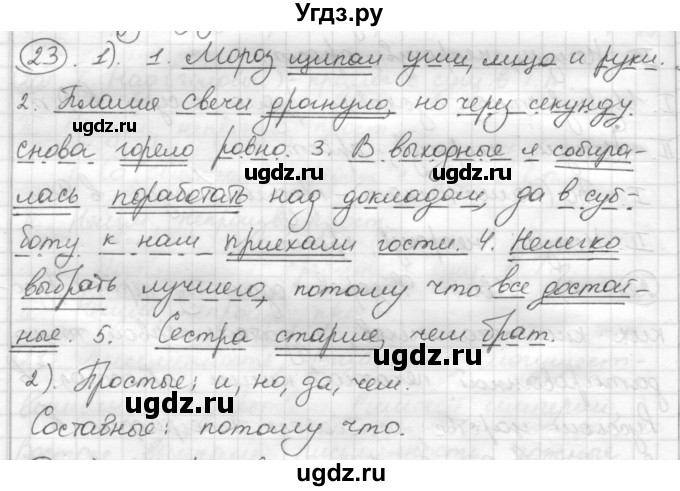 Угдз.ру
23. 1). 1. Мороз щипал уши, лицо и руки.
2. Пламя свечи дрогнуло, но через секунду
угдз.ру
угдз.ру
снова горело ровно. 3. В выходные я собира-
лась поработать над докладом, да в суб-
боту к нам приехали гости. 4. Нелегко
выбрать лучшего, потому что все достой-
ные. 5. Сестра старше, чем брат.
угдз.ру
2). Простые: и, но, да, чем.
угдз.ру
Составные: потому что.
угдз.ру